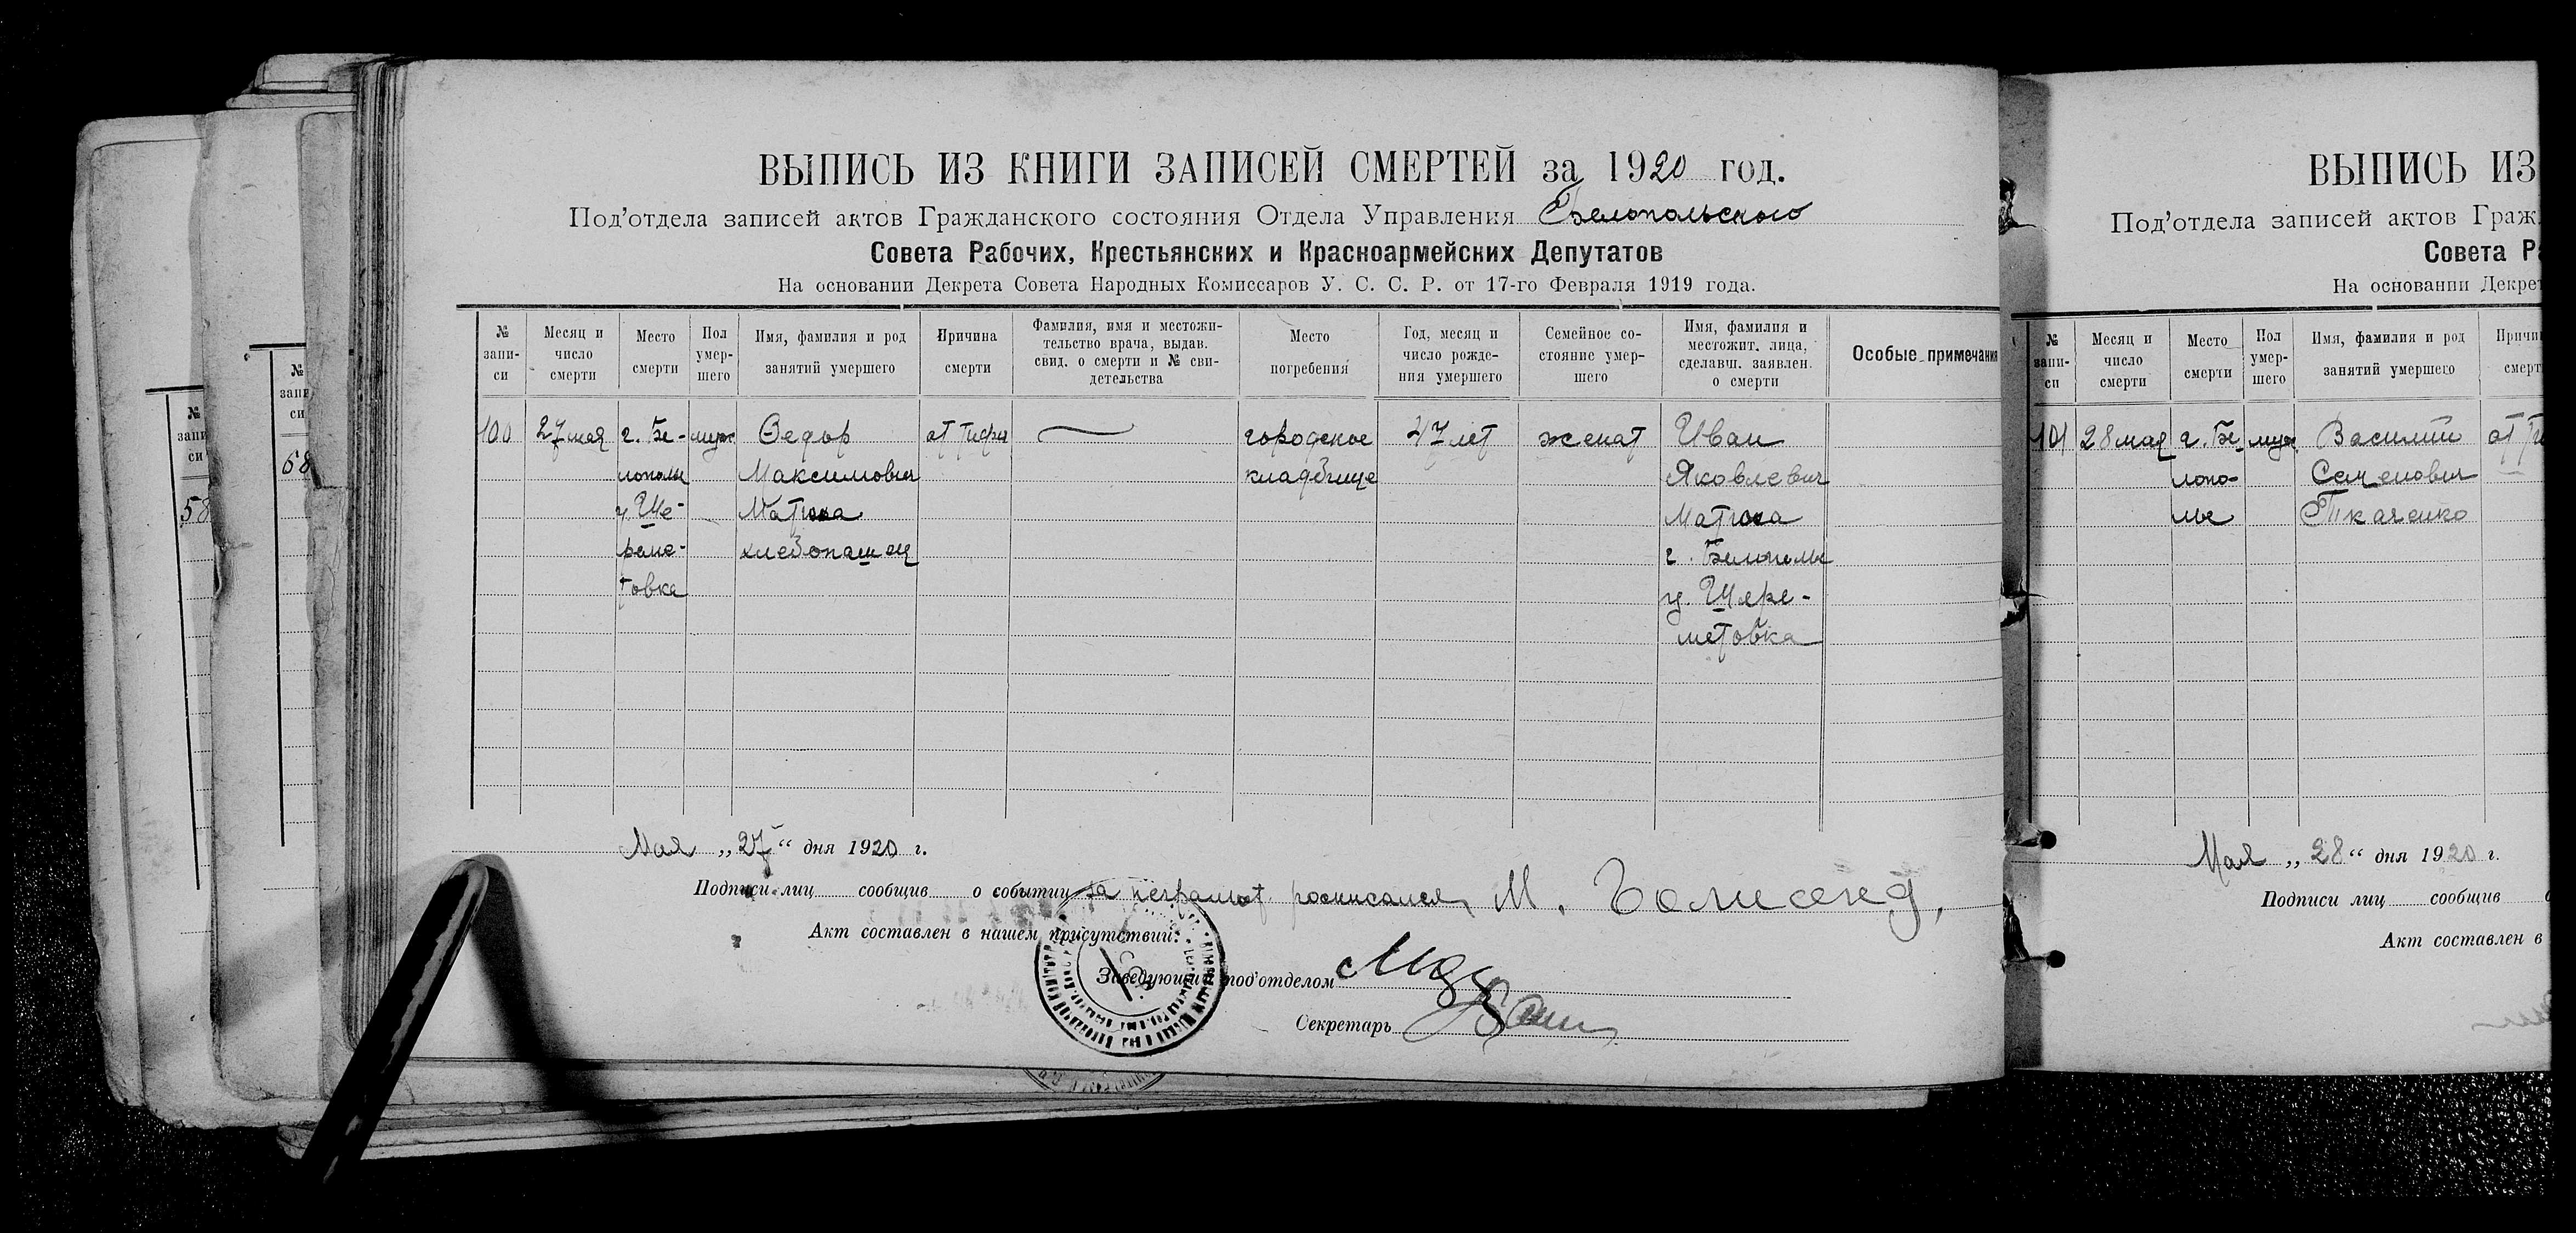 ВЫПИСЬ ИЗ КНИГИ ЗАПИСЕЙ СМЕРТЕЙ за 1920 год.
Под'отдела записей актов Гражданского состояния Отдела Управления Белопольского
Совета Рабочих, Крестьянских и Красноармейских Депутатов
На основании Декрета Совета Народных Комиссаров У. С. С. Р. от 17-го Февраля 1919 года.
№ запи- си
Месяц и число смерти
Место смерти
Пол умер- шего
Имя, фамилия и род занятий умершего
Причина смерти
Фамилия, имя и местожи- тельство врача, выдав. свид. о смерти и № сви- детельства
Место погребения
Год, месяц и число рожде- ния умершего
Семейное со- стояние умер- шего
Имя, фамилия и местожит. лица, сделавш. заявлен. о смерти
Особые примечания
100 27 мая г. Бе- муж Федор от тифа городское 47 лет женат Иван
лополье Максимович кладбище Яковлевич
ч. Ше- Матюха Матюха
реме- хлебопашец г. Белополье
товка ч. Шере-
метовка
Мая „27“ дня 1920 г.
Подписи лиц сообщив о событии за неграмот. росписался М.
Акт составлен в нашем присутствии:
Заведующий под'отделом
Секретарь
ВЫПИСЬ ИЗ
Под'отдела записей актов Граж
Совета Р
На основании Декрет
№ запи- си
Месяц и число смерти
Место смерти
Пол умер- шего
Имя, фамилия и род занятий умершего
Причи
смерт
101 28 мая г. Бе муж Василий от
лопо- Семенович
лье Ткаченко
Мая „28“ дня 1920 г.
Подписи лиц сообщив
Акт составлен в
№
запи
си
58
№
запи
си
58